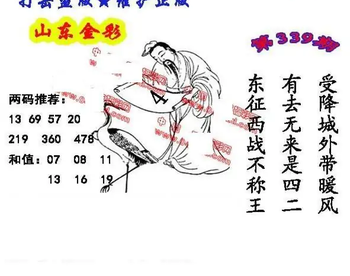 打击盗版黄维护正版
山东金彩
第339期
两码推荐：
13 69 57 20
219 360 478
和值：07 08 11
13 16 19
4
受降城外带暖风
有去无来是四二
东征西战不称王